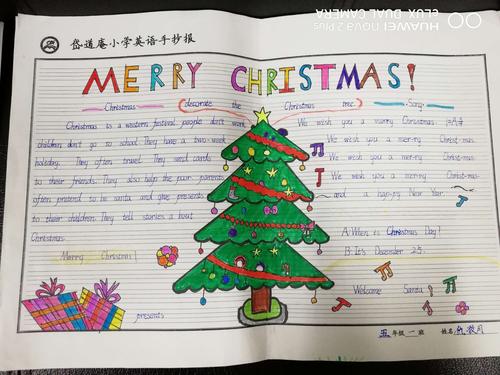 HUAWEI nova 2 Plus
CLUX DUAL CAMERA
岱道庵小学英语手抄报
MERRY CHRISTMAS!
Christmas
decorate the Christmas tree
Song
Christmas is a western festival people don't work
children don't go to school They have a two-week
holiday. They often travel They send cards
to their friends. They also help the poor parents
often pretend to be santa and give presents
to their children They tell stories a bout
Christmas.
Merry Christmas!
presents
We wish you a marry Christmas
We wish you a mer-ry Christ-mas
We wish you a mer-ry Christ-mas
We wish you a mer-ry Christ-mas
and a hap-py New Year.
A:When is Christmas Day?
B:It's December 25.
Welcome Santa!
五年级一班 姓名: